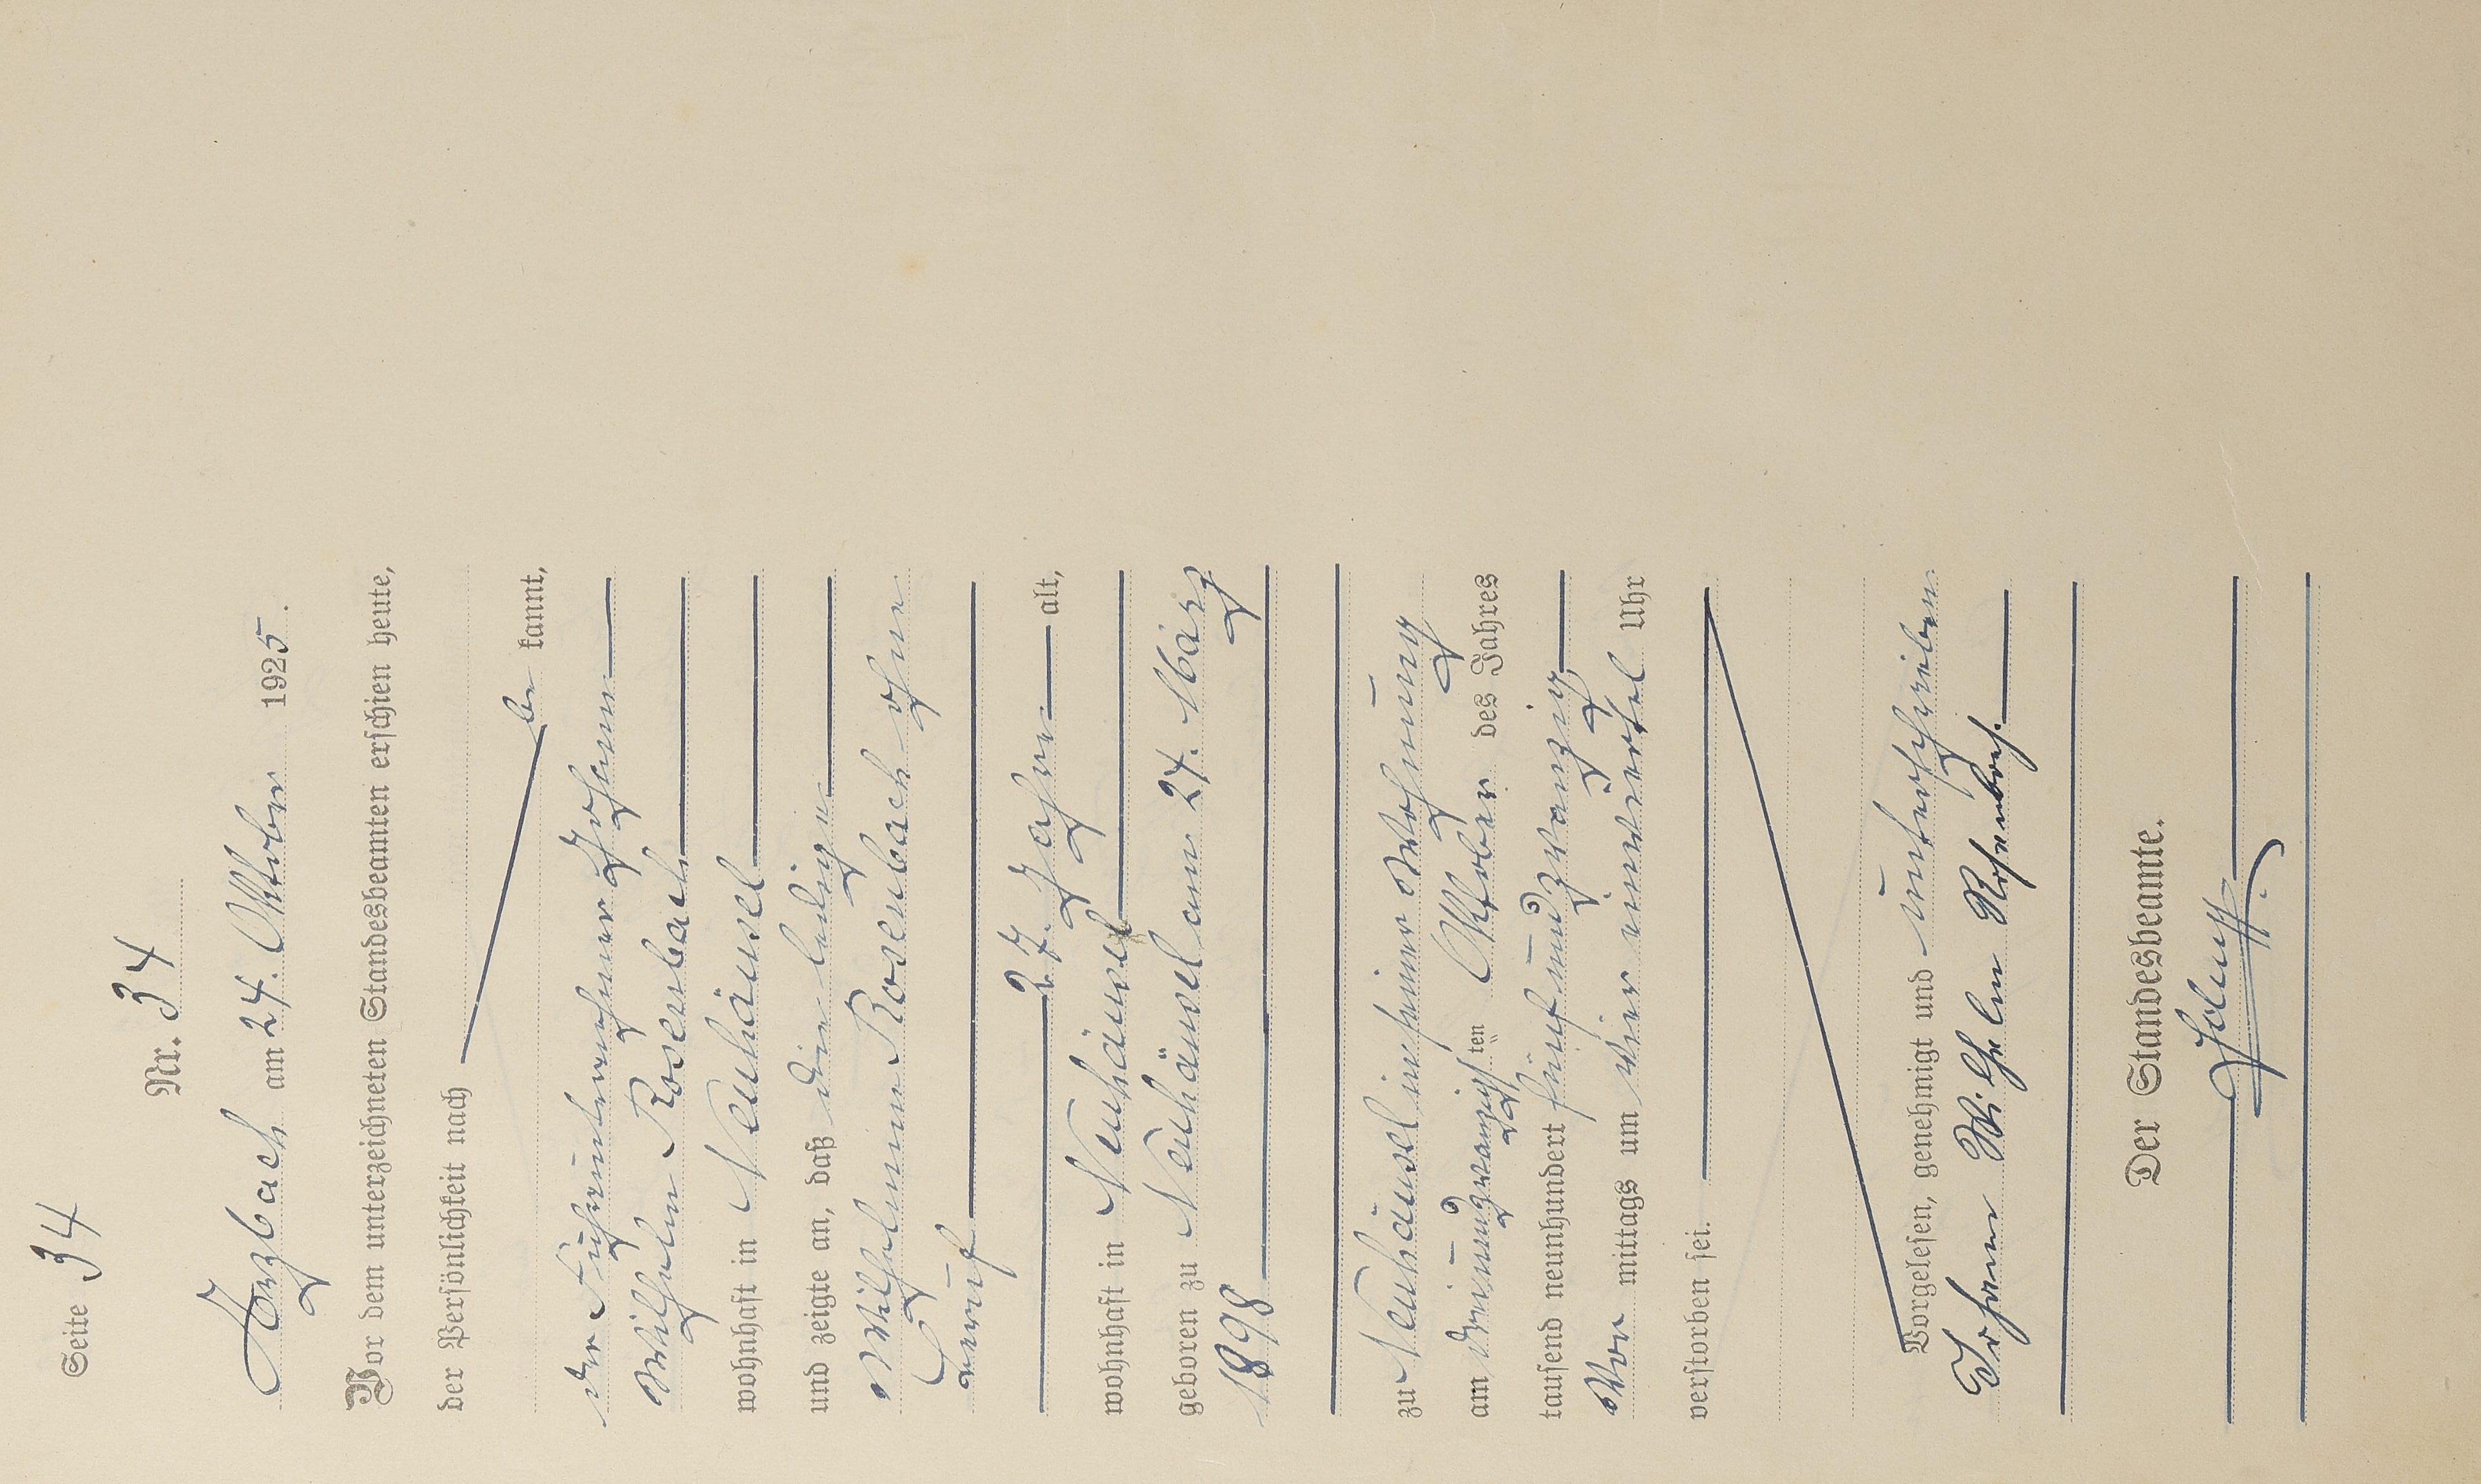 Seite 34
Nr. 34
Arzbach am 24. Oktober 1925.
Vor dem unterzeichneten Standesbeamten erschien heute,
der Persönlichkeit nach
be kannt,
der Fuhrunternehmer Johann
Wilhelm Rosenbach
wohnhaft in Neuhäusel
und zeigte an, daß die ledige
Wilhelmine Rosenbach ohne
Beruf
27. Jahre alt,
wohnhaft in Neuhäusel
geboren zu Neuhäusel am 24. März
1898
zu Neuhäusel in seiner Wohnung
am dreiundzwanzigsten Oktober des Jahres
tausend neunhundert fünfundzwanzig
Vor mittags um vier einviertel Uhr
verstorben sei.
Vorgelesen, genehmigt und unterschrieben
Johann Wilhelm Rosenbach.
Der Standesbeamte.